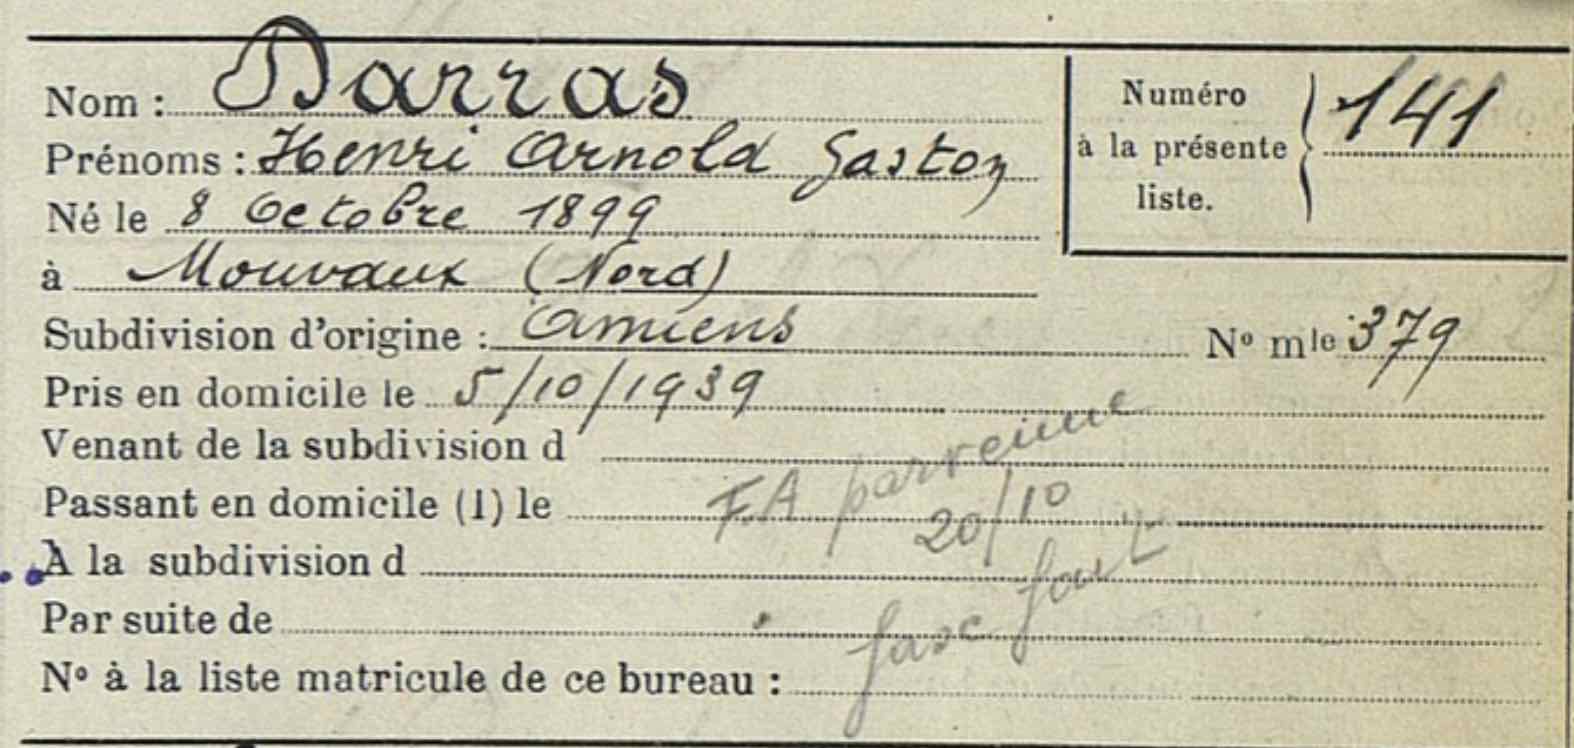 Nom : Darras
Prénoms : Henri Arnold Gaston
Né le 8 Octobre 1899
à Mouvaux (Nord)
Numéro
à la présente
liste.
141
Subdivision d'origine : Amiens Nº mle 379
Pris en domicile le 5/10/1939
Venant de la subdivision d
Passant en domicile (1) le
A la subdivision d
Par suite de
Nº à la liste matricule de ce bureau :
F.A parvenue
20/10
fasc